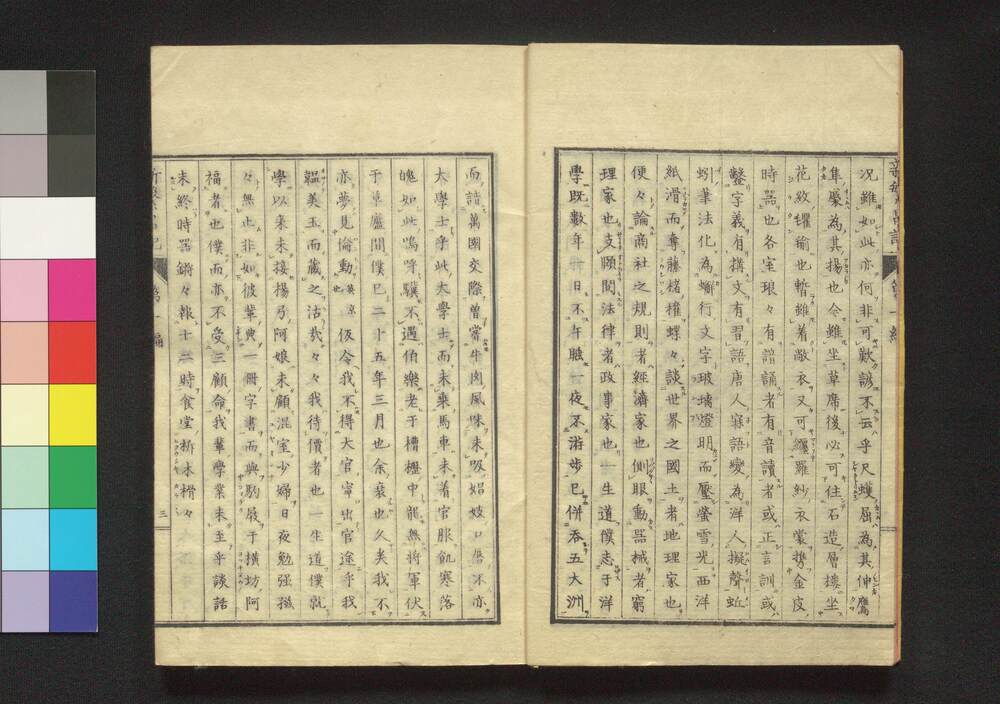 况雖如此亦何非可歎諺不云乎尺蠖屈為其伸鷹
隼屬為其揚也今雖坐草席後必可住石造層樓坐
花紋氍毹也暫雖着敝衣又可纏羅紗衣裳携金皮
時器也各室琅々有諳誦者有音讀者或正言訓或
鑿字義有搆文有習語唐人寐語變為洋人擬聲蚯
蚓筆法化為蝸行文字玻璃燈明而壓螢雪光西洋
紙滑而奪藤楮權蝶々談世界之國土者地理家也
便々論商社之規則者經濟家也側眼動器械者窮
理家也支頤閱法律者政事家也一生道僕志于洋
學既數年日不午睡一夜不游步已併吞五大洲
而諳萬國交際曾甞牛肉風味未吸娼妓口唇不亦
大學士乎此大學士而未乘馬車未着官服飢寒落
魄如此嗚呼驥不遇伯樂老于槽櫪中龍無將軍伏
于草廬間僕已二十五年三月也余衰也久矣我不
亦夢見倫動英京也仮令我不得大官寧出官途乎我
韞美玉而藏之沽哉々々我待價者也一生道僕就
學以来未接揚弓阿娘未顧混室少婦日夜勉强孳
々無止非如彼輩典一冊字書而與駒屐于橫坊阿
福者也僕而亦不受三顧命我輩學業未至乎談話
未終時器鏘々報十二時食堂柝木榾々
三